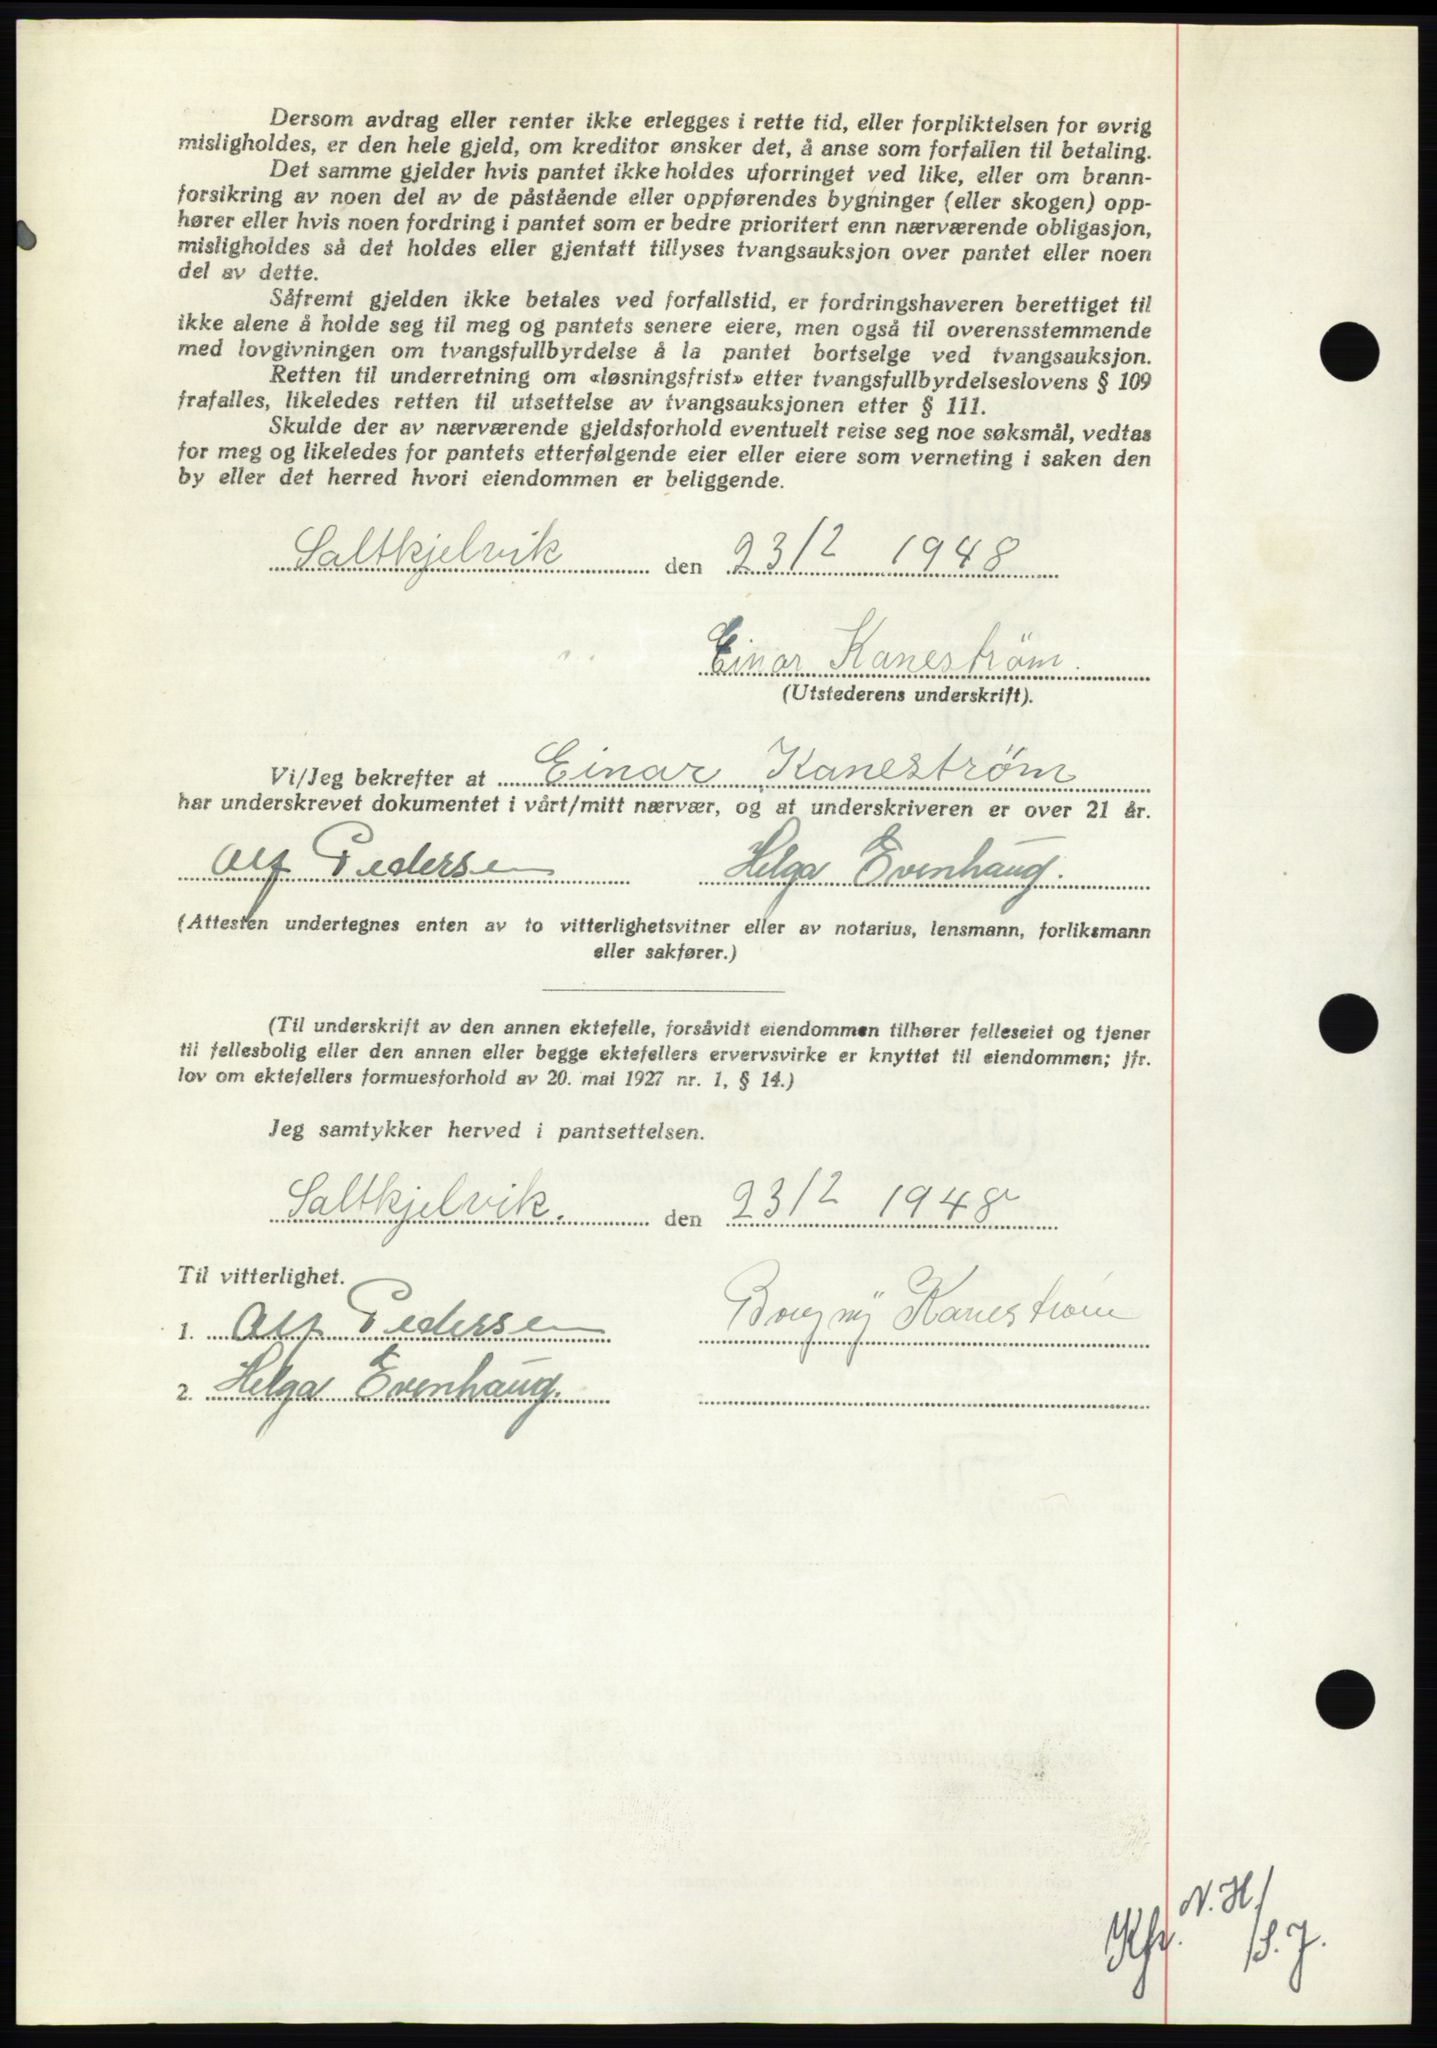 Dersom avdrag eller renter ikke erlegges i rette tid, eller forpliktelsen for øvrig
misligholdes, er den hele gjeld, om kreditor ønsker det, å anse som forfallen til betaling.
Det samme gjelder hvis pantet ikke holdes uforringet ved like, eller om brann-
forsikring av noen del av de påstående eller oppførendes bygninger (eller skogen) opp-
hører eller hvis noen fordring i pantet som er bedre prioritert enn nærværende obligasjon,
misligholdes så det holdes eller gjentatt tillyses tvangsauksjon over pantet eller noen
del av dette.
Såfremt gjelden ikke betales ved forfallstid, er fordringshaveren berettiget til
ikke alene å holde seg til meg og pantets senere eiere, men også til overensstemmende
med lovgivningen om tvangsfullbyrdelse å la pantet bortselge ved tvangsauksjon.
Retten til underretning om «løsningsfrist» etter tvangsfullbyrdelseslovens § 109
frafalles, likeledes retten til utsettelse av tvangsauksjonen etter § 111.
Skulde der av nærværende gjeldsforhold eventuelt reise seg noe søksmål, vedtas
for meg og likeledes for pantets etterfølgende eier eller eiere som verneting i saken den
by eller det herred hvori eiendommen er beliggende.
Saltkjelvik den 23/2 1948
Einar Kaneström.
(Utstederens underskrift).
Vi/Jeg bekrefter at Einar Kaneström
har underskrevet dokumentet i vårt/mitt nærvær, og at underskriveren er over 21 år.
Alf Pedersen Helga Evenhaug.
(Attesten undertegnes enten av to vitterlighetsvitner eller av notarius, lensmann, forliksmann
eller sakfører.)
(Til underskrift av den annen ektefelle, forsåvidt eiendommen tilhører felleseiet og tjener
til fellesbolig eller den annen eller begge ektefellers ervervsvirke er knyttet til eiendommen; jfr.
lov om ektefellers formuesforhold av 20. mai 1927 nr. 1, § 14.)
Jeg samtykker herved i pantsettelsen.
Saltkjelvik. den 23/2 1948
Til vitterlighet.
1. Alf Pedersen Kaneström
2. Helga Evenhaug.
N. H/
Kfr. /S. J.